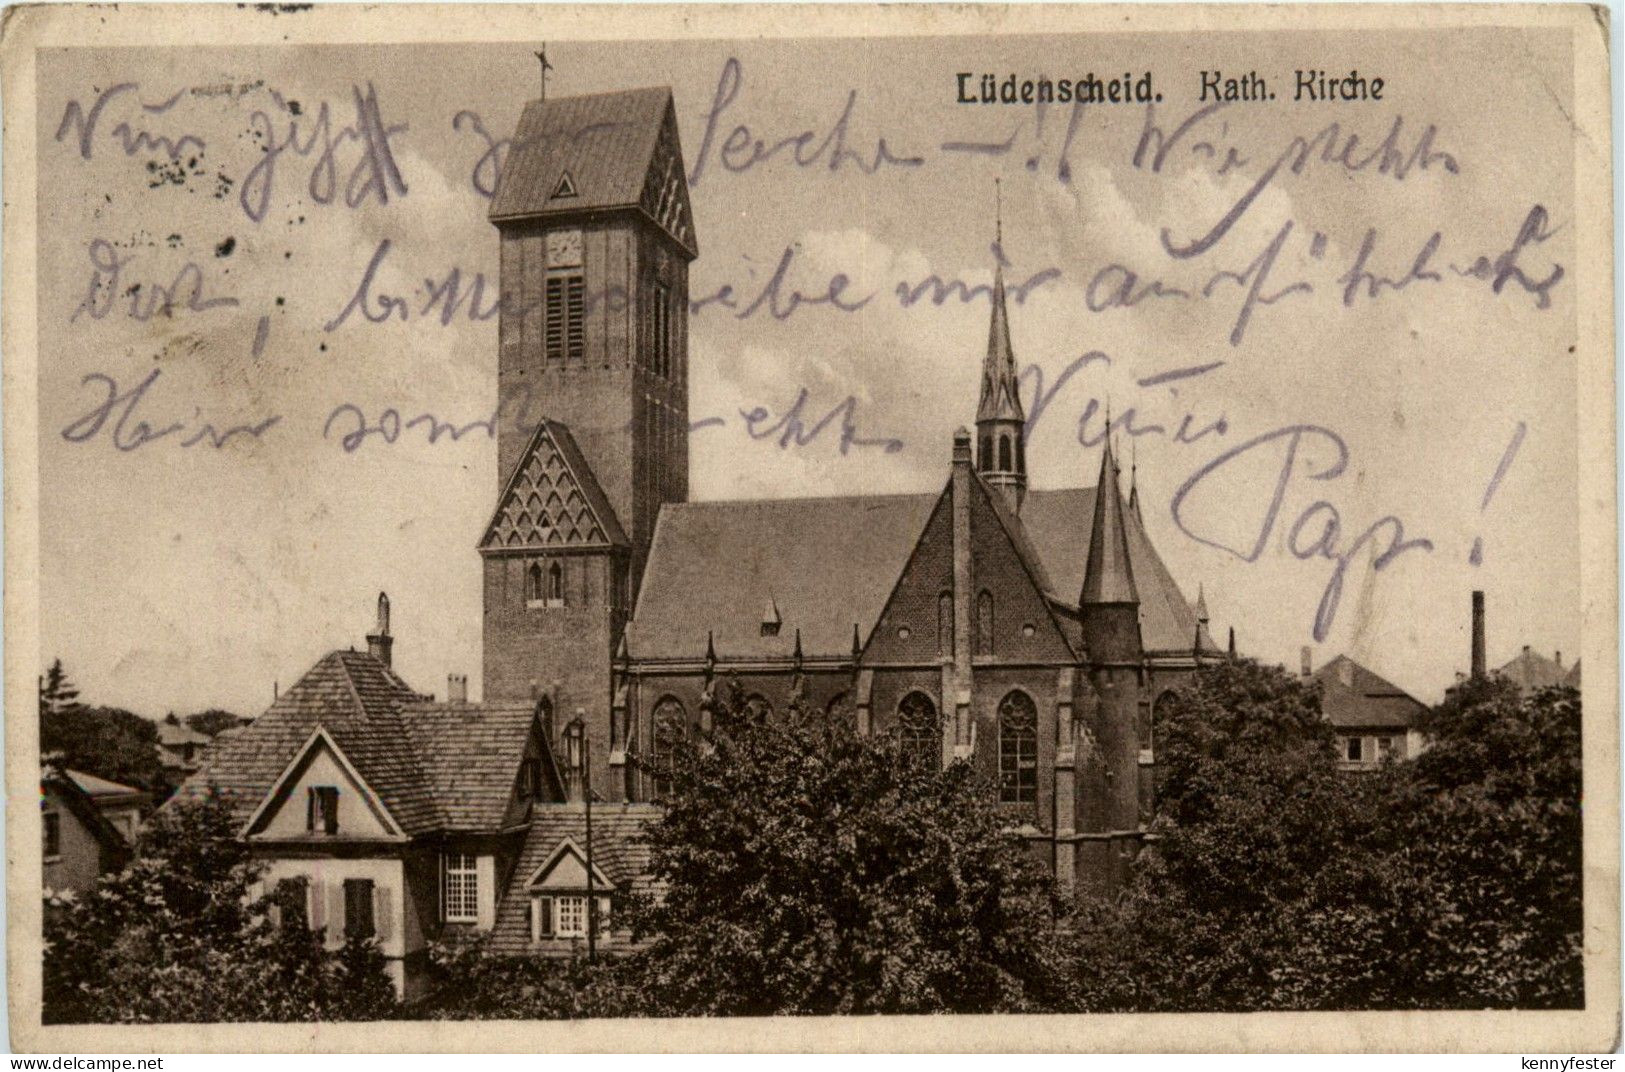 Lüdenscheid. Kath. Kirche
Nun jetzt zur Sache —!! Wie stehts
dort, bitte schreibe mir ausführlich
Hier sonst nichts Neues
Pap!
www.delcampe.net
kennyfester